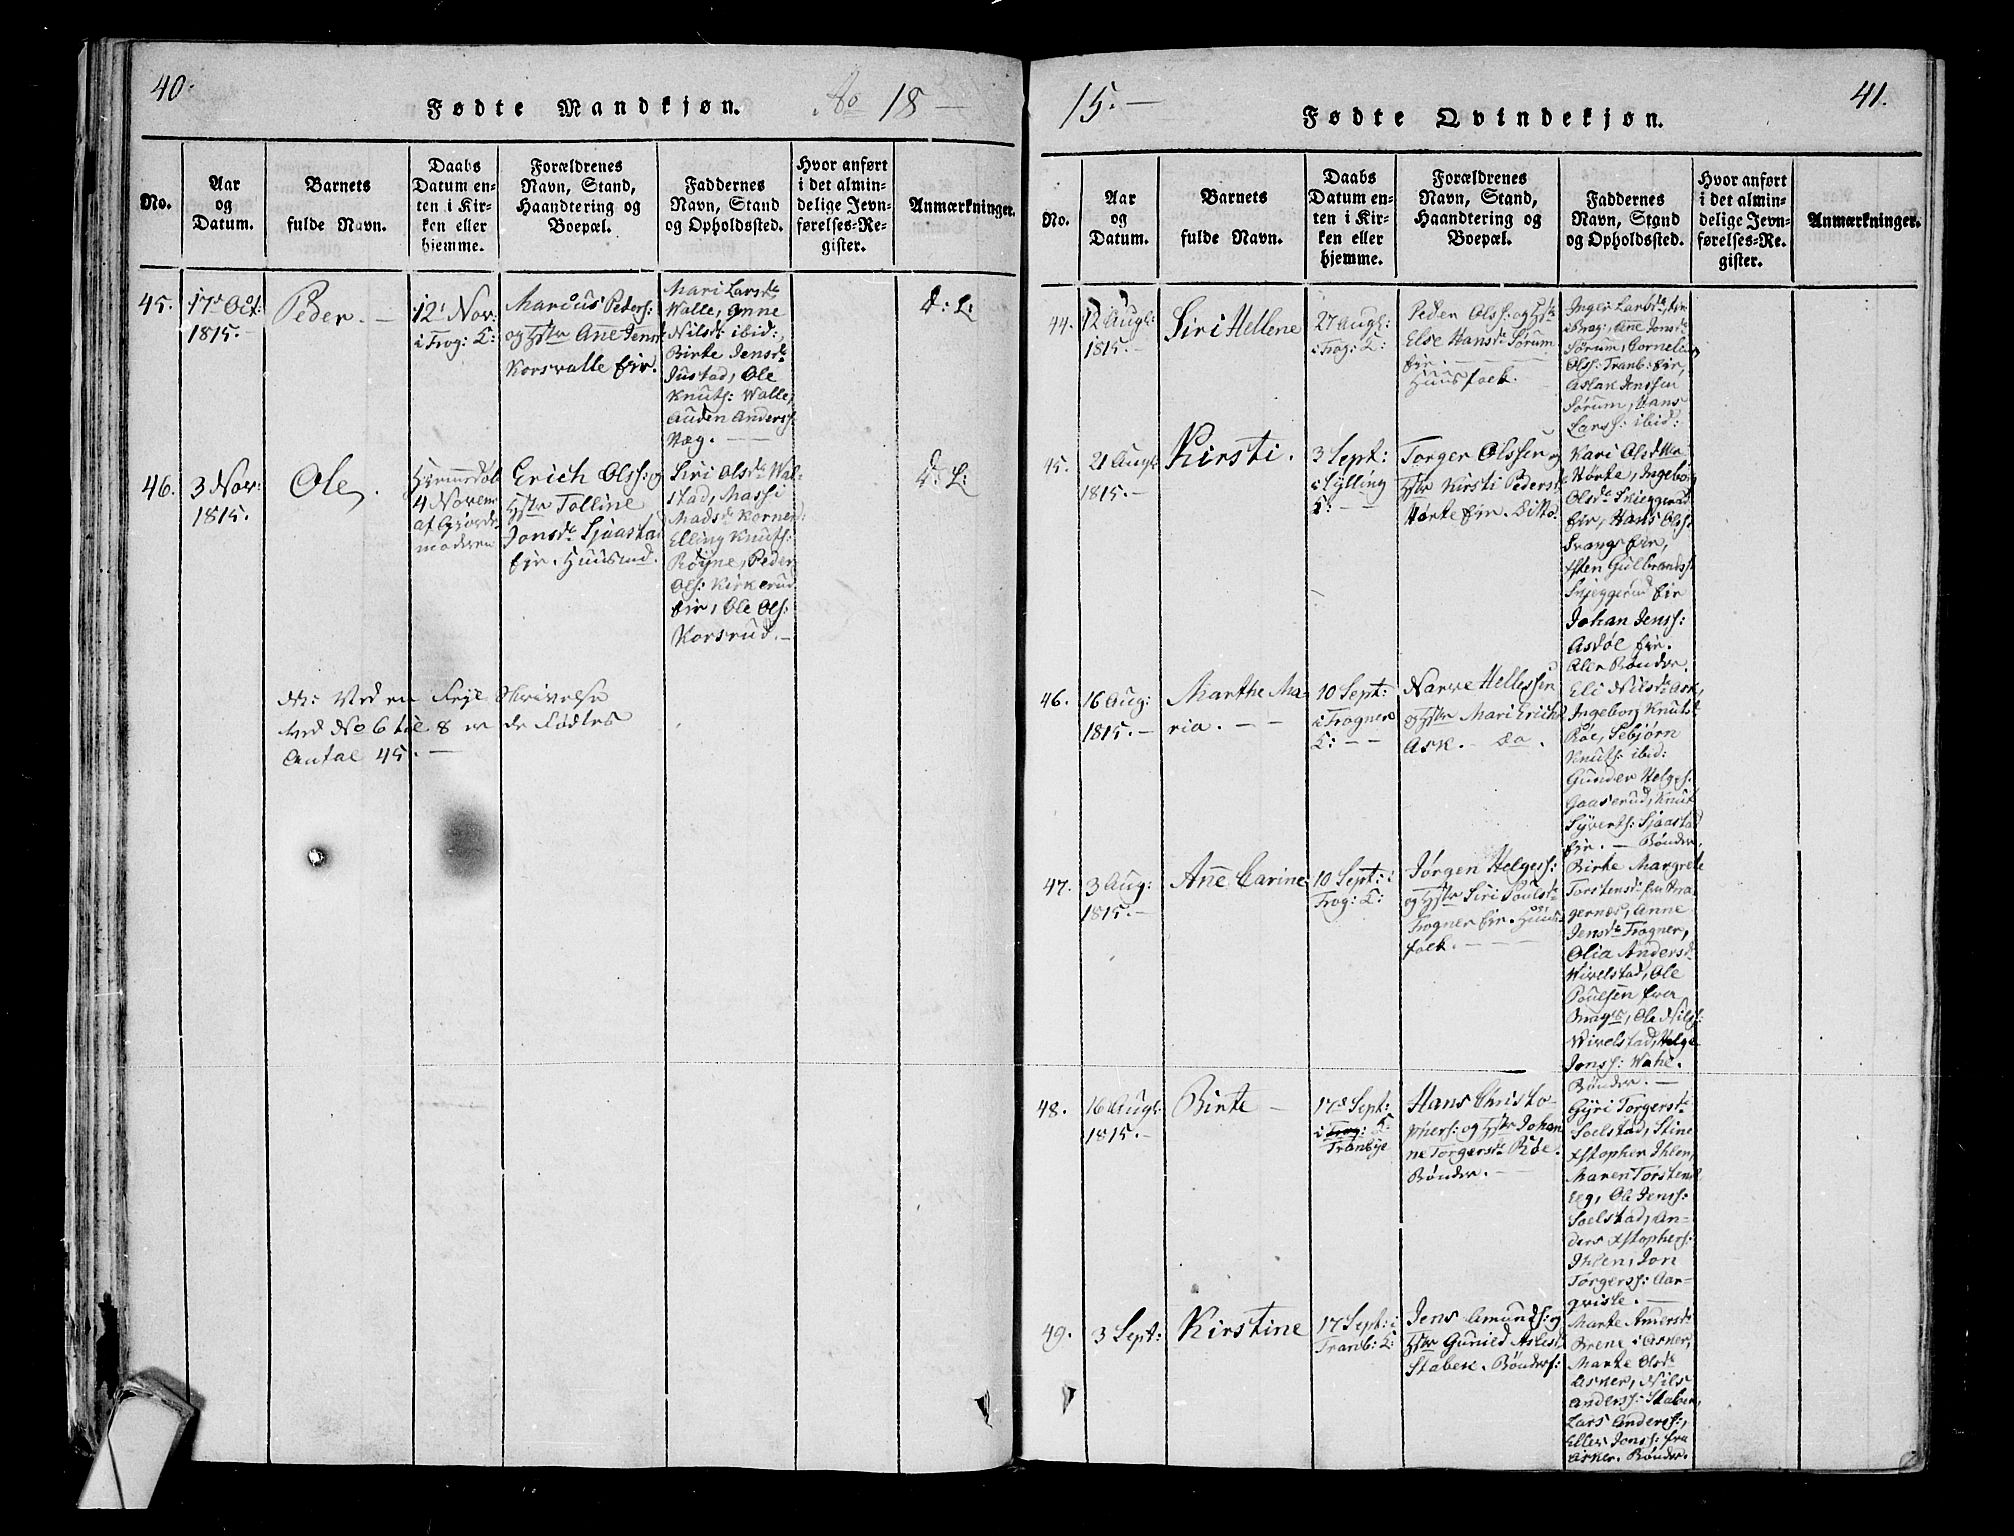 40.
Fødte Mandkjøn. Ao 18 —
No.
Aar
og
Datum.
Barnets
fulde Navn.
Daabs
Datum en-
ten i Kir-
ken eller
hjemme.
Forældrenes
Navn, Stand,
Haandtering og
Boepæl.
Faddernes
Navn, Stand
og Opholdssted.
Hvor anført
i det almin-
delige Jevn-
førelses-Re-
gister.
Anmærkninger.
45.
17d Oct:
1815.-
Peder. -
12' Nov:
i Frog: K:
Marcus Peders:
og Hstr Ane Jens
Korsvalle Eie.
Mari Larsdr
Walle, Anne
Nilsdr ibid:,
Birte Jensdr
Justad, Ole
Knuts: Walle,
Auden Anders:
Hæg. —
D: L:
46.
3 Nov:
1815.
Ole.
Hjemmedøb
4 Novem
af Gjorde
moderen
Erich Olss: og
Hstr Tolline
Jonsdr Sjaastad
Eie. Huusmd.
Siri Olsdr Wal-
stad, Massi
Madsdr Korner
Elling Knuts:
Røyne, Peder
Ols: Kirkerud
Eie, Ole Ols:
Korsrud.-
D: L:
N: Ved en Fejl Skrivelse
ved No 6 til 8 er de Fødtes
Antal 45. —
15. —
Fødte Qvindekjøn.
41.
No.
Aar
og
Datum.
Barnets
fulde Navn.
Daabs
Datum en-
ten i Kir-
ken eller
hjemme.
Forældrenes
Navn, Stand,
Haandtering og
Boepæl.
Faddernes
Navn, Stand
og Opholdssted.
Hvor anført
i det almin-
delige Jevn-
førelses-Re-
gister.
Anmærkninger.
44.
12 Augl:
1815.-
Siri Hellene
27 Augl:
i Frog: K:
Peder Olss: og Hstr
Else Hansdr Sørum
Eie. — — —
Huusfolk.
Inger Larsdr
i Brag:, Anne Jonsdr
Sørum, Cornelius
Olss: Tranb: Eie,
Aslak Jenssen
Sørum, Hans
Larss: ibid:
45.
21 Augl:
1815.-
Kirsti.
3 Sept:
i Sylling
K: - -
Torger Olssen og
Hstr Kirsti Pedersdr
Hørte Eie. Ditto.
Kari Olsdr
Hørte, Ingeborg
Olsdr Skieggerud
Eie, Hans Ols:
Eie,
Gulbrandss:
Skjeggerud Eie
Johan Jenss:
Asdøl Eie.
Alle Bønder.
46.
16 Aug:
1815.-
Marthe Ma-
ria. - -
10 Sept:
i Frogner
K: - -
Narve Hellessen
og Hstr Mari Erichs
Ask. - Do.
Eli Nilsdr Ask,
Ingeborg Knuts
Røe, Sebjørn
Knuts: ibid:
Gunder Helges:
Gaaserud, Knut
Syverts: Sjaastad
Eie. - Bønder.
47.
3 Aug:
1815.-
Anne Carine
10 Sept: i
Frog: K:
Jørgen Helgess:
og Hstr Siri Poulsdr
Frogner Eie. Huus-
folk. - - -
Birte Margrete
Torstensdr fra Bra-
gernæs, Anne
Jensdr Frogner,
Olia Andersdr
Wivelstad, Ole
Poulsen fra
Brags, Ole Nilss:
Wivelstad, Helge
Jonss: Wahl.
Bønder. —
48.
16 Augl:
1815.-
Birte -
17d Sept:
i Frog: K:
Tranbye
Hans Christo-
phers: og Hstr Johan
ne Torgersdr Røe.
Bønder. -
Gyri Torgersdr
Soelstad, Stine
Xstopher Ihlen,
Maren Torstens
Eeg, Ole Jenss:
Soelstad, An-
ders Xstophers:
Ihlen, Jon
Torgerss: Aar-
qvisle. —
49.
3 Sept:
Kirstine
17 Sept: i
Tranb: K:
Jens Amunds: og
Hstr Gunild Aslesdr
Stabek. Bønders:
Marte Andersdr
Brene i Asker,
Marte Olsdr
Asker, Nils
Anderss: Stabek,
Lars Anderss:,
Ellev Jonss: fra
Asker. Bønder.